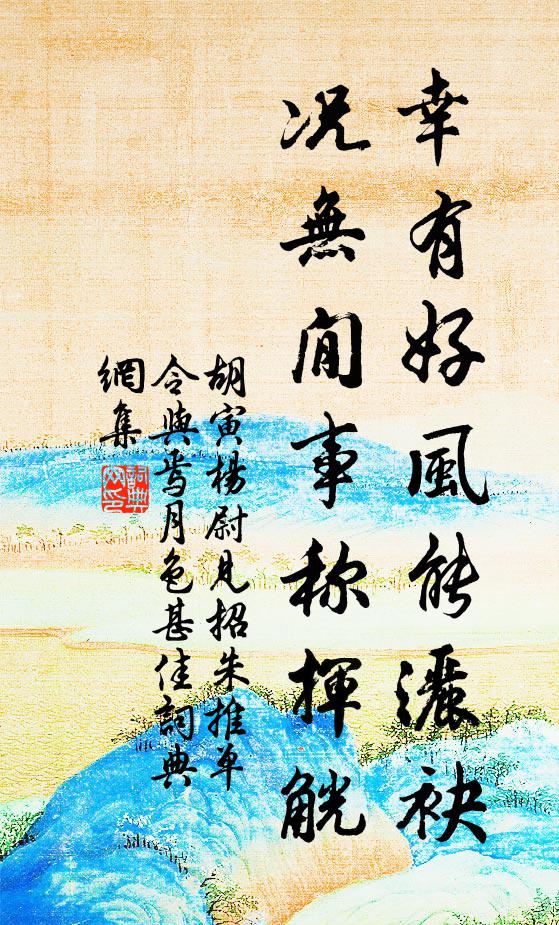 幸有好風能灑袂
况無閒事称揮觥
胡寅楊尉見招朱推单
令與焉月色甚佳詞典
網集